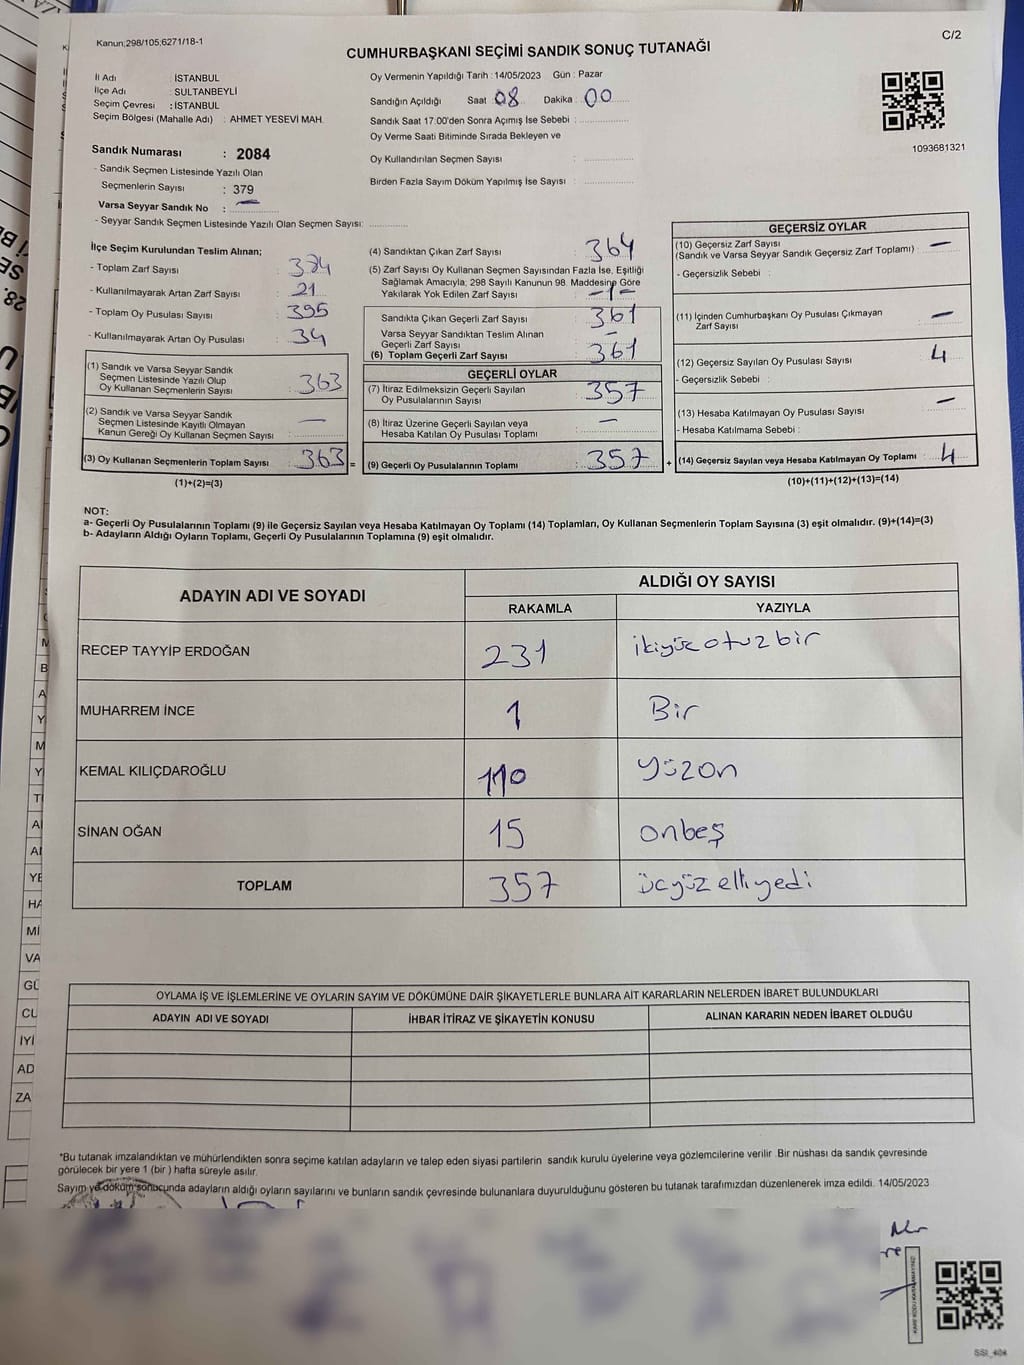 Kanun:298/105;6271/18-1
C/2
CUMHURBAŞKANI SEÇİMİ SANDIK SONUÇ TUTANAĞI
İl Adı : İSTANBUL
İlçe Adı : SULTANBEYLİ
Seçim Çevresi : İSTANBUL
Seçim Bölgesi (Mahalle Adı) : AHMET YESEVİ MAH.
Oy Vermenin Yapıldığı Tarih : 14/05/2023 Gün : Pazar
Sandığın Açıldığı Saat : 08 Dakika : 00
Sandık Saat 17:00'den Sonra Açımış İse Sebebi :
Oy Verme Saati Bitiminde Sırada Bekleyen ve
Oy Kullandırılan Seçmen Sayısı :
Birden Fazla Sayım Döküm Yapılmış İse Sayısı :
1093681321
Sandık Numarası : 2084
- Sandık Seçmen Listesinde Yazılı Olan
Seçmenlerin Sayısı : 379
Varsa Seyyar Sandık No : —
- Seyyar Sandık Seçmen Listesinde Yazılı Olan Seçmen Sayısı:
İlçe Seçim Kurulundan Teslim Alınan;
- Toplam Zarf Sayısı : 384
- Kullanılmayarak Artan Zarf Sayısı : 21
- Toplam Oy Pusulası Sayısı : 395
- Kullanılmayarak Artan Oy Pusulası : 34
(1) Sandık ve Varsa Seyyar Sandık
Seçmen Listesinde Yazılı Olup
Oy Kullanan Seçmenlerin Sayısı : 363
(2) Sandık ve Varsa Seyyar Sandık
Seçmen Listesinde Kayıtlı Olmayan
Kanun Gereği Oy Kullanan Seçmen Sayısı : —
(3) Oy Kullanan Seçmenlerin Toplam Sayısı : 363 =
(1)+(2)=(3)
(4) Sandıktan Çıkan Zarf Sayısı : 364
(5) Zarf Sayısı Oy Kullanan Seçmen Sayısından Fazla İse, Eşitliği
Sağlamak Amacıyla, 298 Sayılı Kanunun 98. Maddesine Göre
Yakılarak Yok Edilen Zarf Sayısı : -1-
Sandıkta Çıkan Geçerli Zarf Sayısı : 361
Varsa Seyyar Sandıktan Teslim Alınan
Geçerli Zarf Sayısı : —
(6) Toplam Geçerli Zarf Sayısı : 361
GEÇERLİ OYLAR
(7) İtiraz Edilmeksizin Geçerli Sayılan
Oy Pusulalarının Sayısı : 357
(8) İtiraz Üzerine Geçerli Sayılan veya
Hesaba Katılan Oy Pusulası Toplamı : —
(9) Geçerli Oy Pusulalarının Toplamı : 357 +
GEÇERSİZ OYLAR
(10) Geçersiz Zarf Sayısı
(Sandık ve Varsa Seyyar Sandık Geçersiz Zarf Toplamı) : —
- Geçersizlik Sebebi :
(11) İçinden Cumhurbaşkanı Oy Pusulası Çıkmayan
Zarf Sayısı : —
(12) Geçersiz Sayılan Oy Pusulası Sayısı : 4
- Geçersizlik Sebebi :
(13) Hesaba Katılmayan Oy Pusulası Sayısı : —
- Hesaba Katılmama Sebebi :
(14) Geçersiz Sayılan veya Hesaba Katılmayan Oy Toplamı : 4
(10)+(11)+(12)+(13)=(14)
NOT:
a- Geçerli Oy Pusulalarının Toplamı (9) ile Geçersiz Sayılan veya Hesaba Katılmayan Oy Toplamı (14) Toplamları, Oy Kullanan Seçmenlerin Toplam Sayısına (3) eşit olmalıdır. (9)+(14)=(3)
b- Adayların Aldığı Oyların Toplamı, Geçerli Oy Pusulalarının Toplamına (9) eşit olmalıdır.
ADAYIN ADI VE SOYADI
ALDIĞI OY SAYISI
RAKAMLA YAZIYLA
RECEP TAYYİP ERDOĞAN 231 ikiyüz otuz bir
MUHARREM İNCE 1 Bir
KEMAL KILIÇDAROĞLU 110 yüzon
SİNAN OĞAN 15 onbeş
TOPLAM 357 üçyüz elli yedi
OYLAMA İŞ VE İŞLEMLERİNE VE OYLARIN SAYIM VE DÖKÜMÜNE DAİR ŞİKAYETLERLE BUNLARA AİT KARARLARIN NELERDEN İBARET BULUNDUKLARI
ADAYIN ADI VE SOYADI İHBAR İTİRAZ VE ŞİKAYETİN KONUSU ALINAN KARARIN NEDEN İBARET OLDUĞU
*Bu tutanak imzalandıktan ve mühürlendikten sonra seçime katılan adayların ve talep eden siyasi partilerin sandık kurulu üyelerine veya gözlemcilerine verilir. Bir nüshası da sandık çevresinde
görülecek bir yere 1 (bir ) hafta süreyle asılır.
Sayım ve döküm sonucunda adayların aldığı oyların sayılarını ve bunların sandık çevresinde bulunanlara duyurulduğunu gösteren bu tutanak tarafımızdan düzenlenerek imza edildi. 14/05/2023